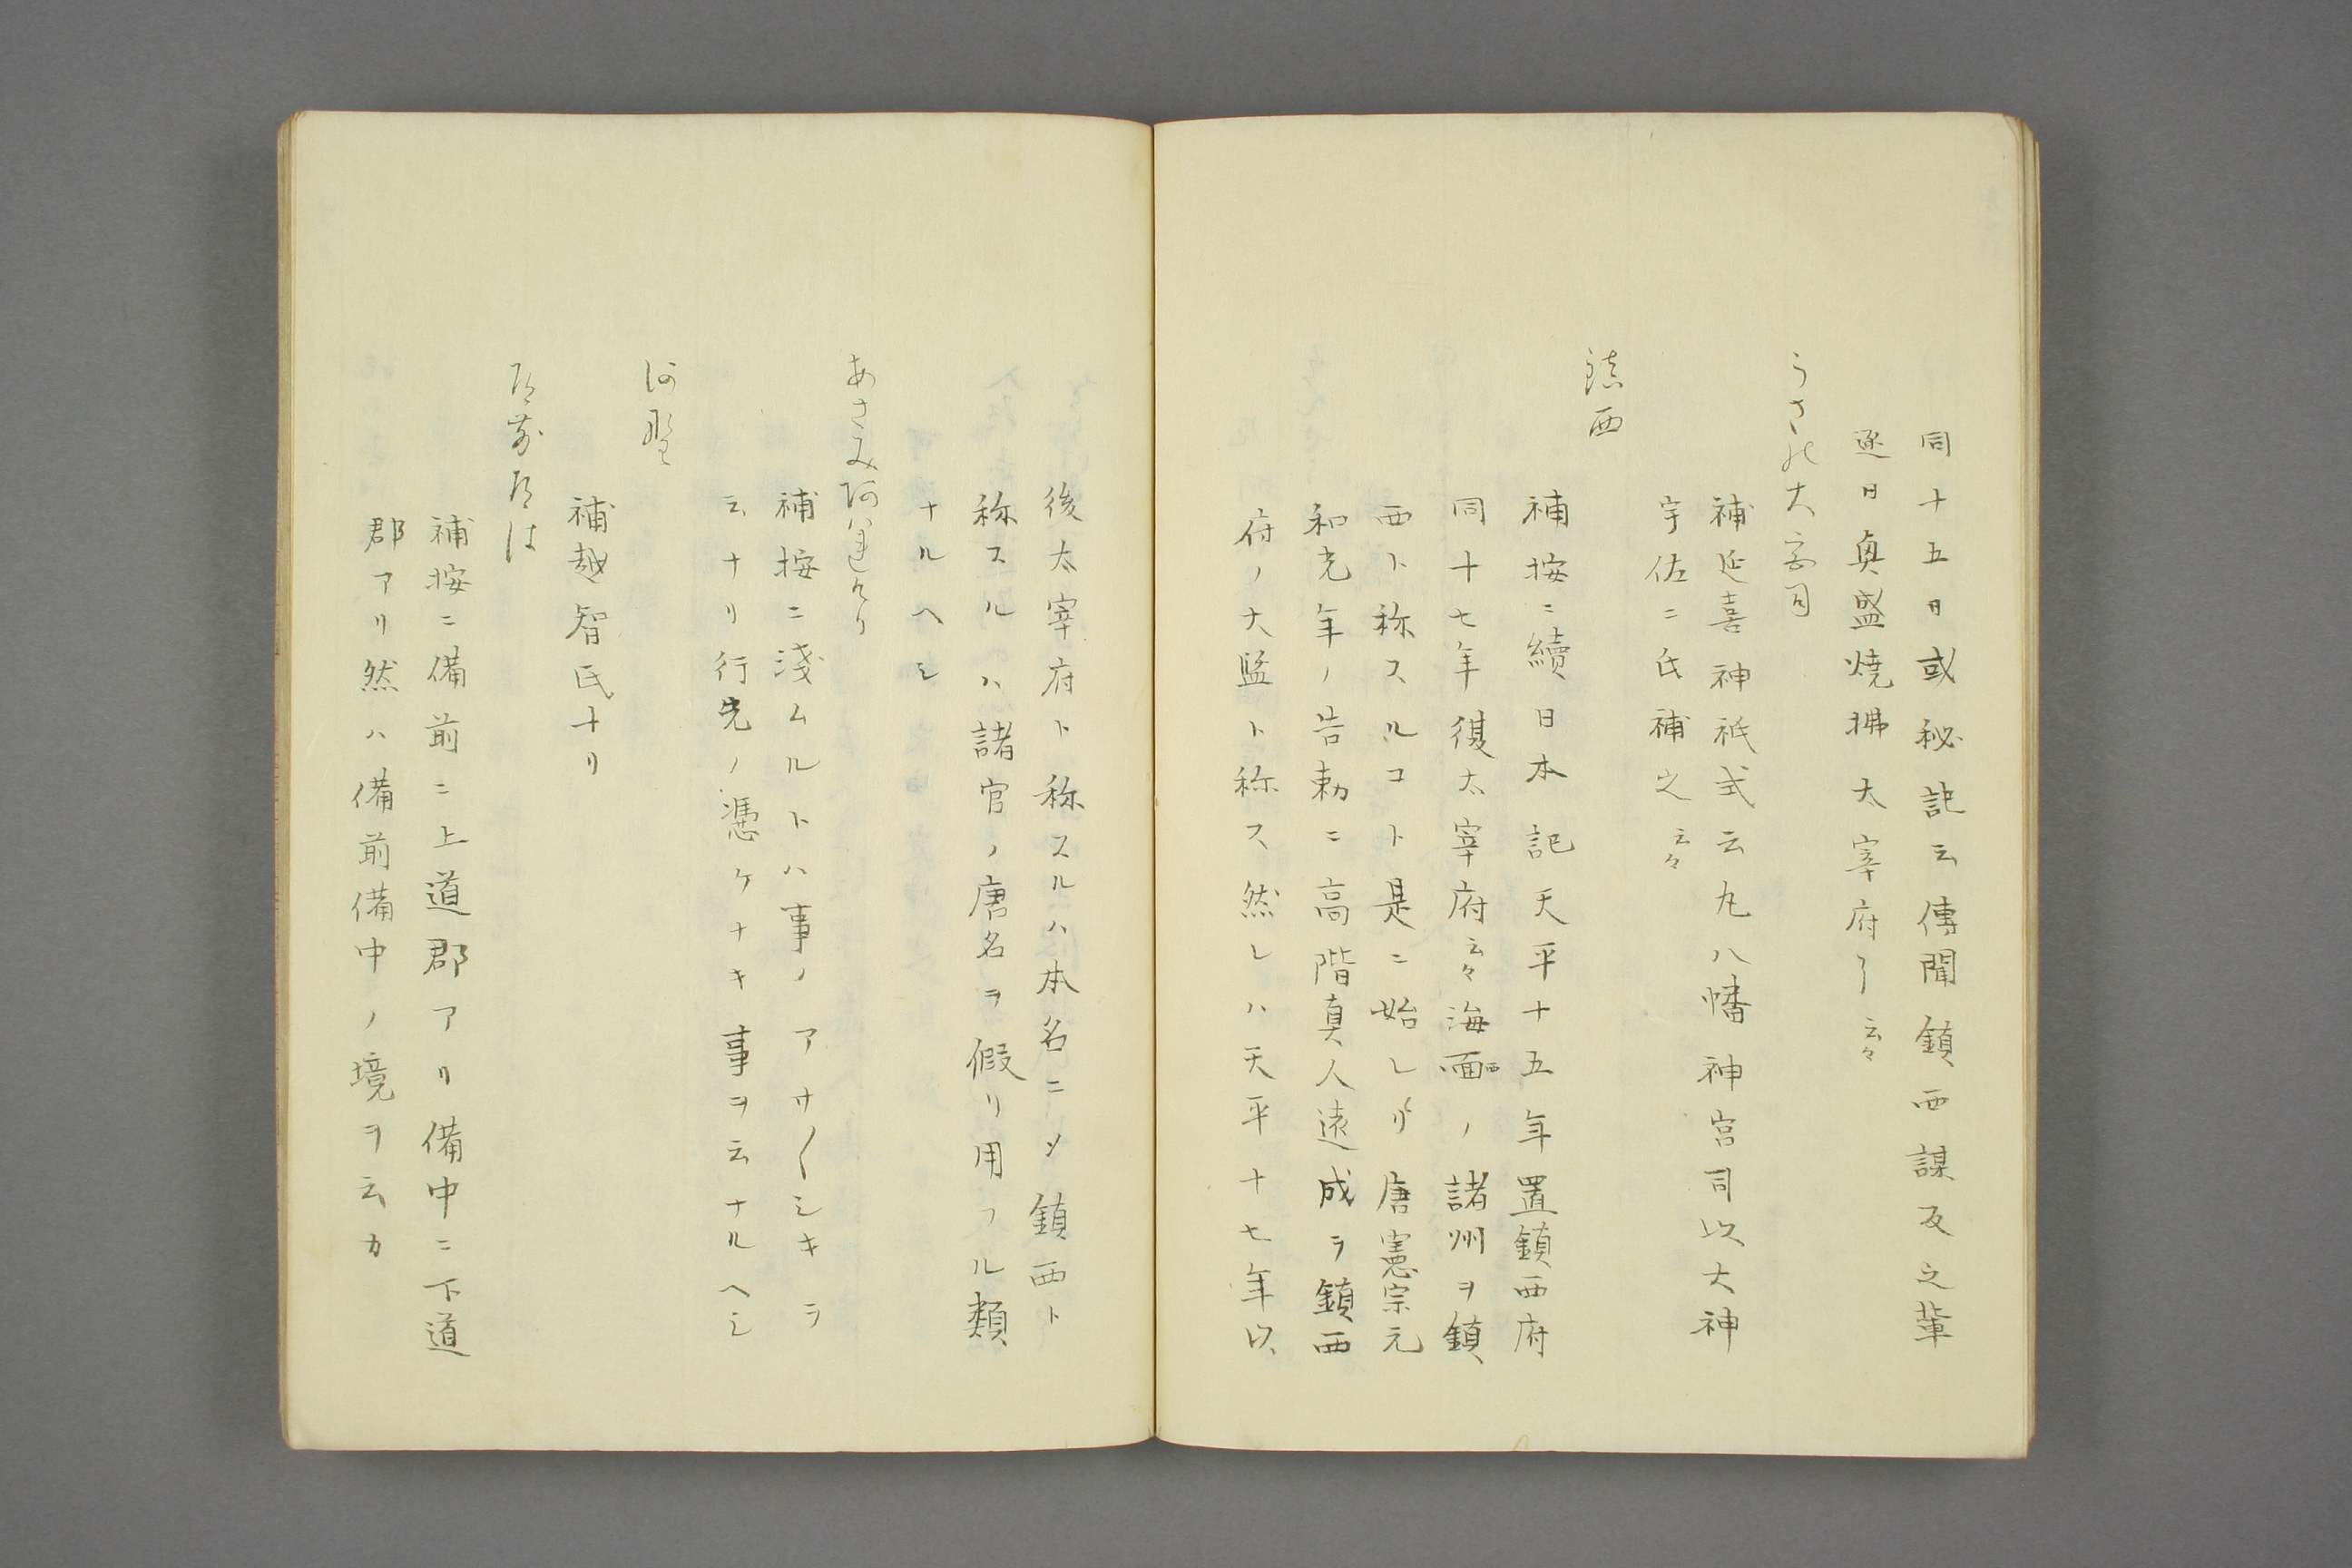 同十五日或秘記云傳聞鎮西謀反之輩
逐日興盛焼拂太宰府了云々
うさの大宮司
補延喜神祇式云凡八幡神宮司以大神
宇佐二氏補之云々
鎮西
補按ニ續日本記天平十五年置鎮西府
同十七年復太宰府云々海面西ノ諸州ヲ鎮
西ト称スルコト是ニ始レリ唐憲宗元
和光年ノ告勅ニ高階真人遠成ヲ鎮西
府ノ大監ト称ス然レハ天平十七年以
後太宰府ト称スルハ本名ニソ鎮西ト
称スルハ諸官ノ唐名ヲ假リ用フル類
ナルヘシ
あさみあはれけり
補按ニ淺ムルトハ事ノアサ〱シキヲ
云ナリ行先ノ憑ケナキ事ヲ云ナルヘシ
河野
補越智氏ナリ
備前備中
補按ニ備前ニ上道郡アリ備中ニ下道
郡アリ然ハ備前備中ノ境ヲ云カ